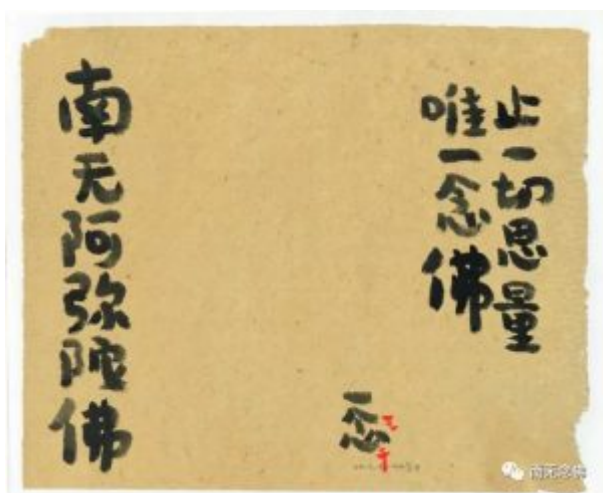 止一切思量
唯一念佛
南无阿弥陀佛
一念
南无念佛